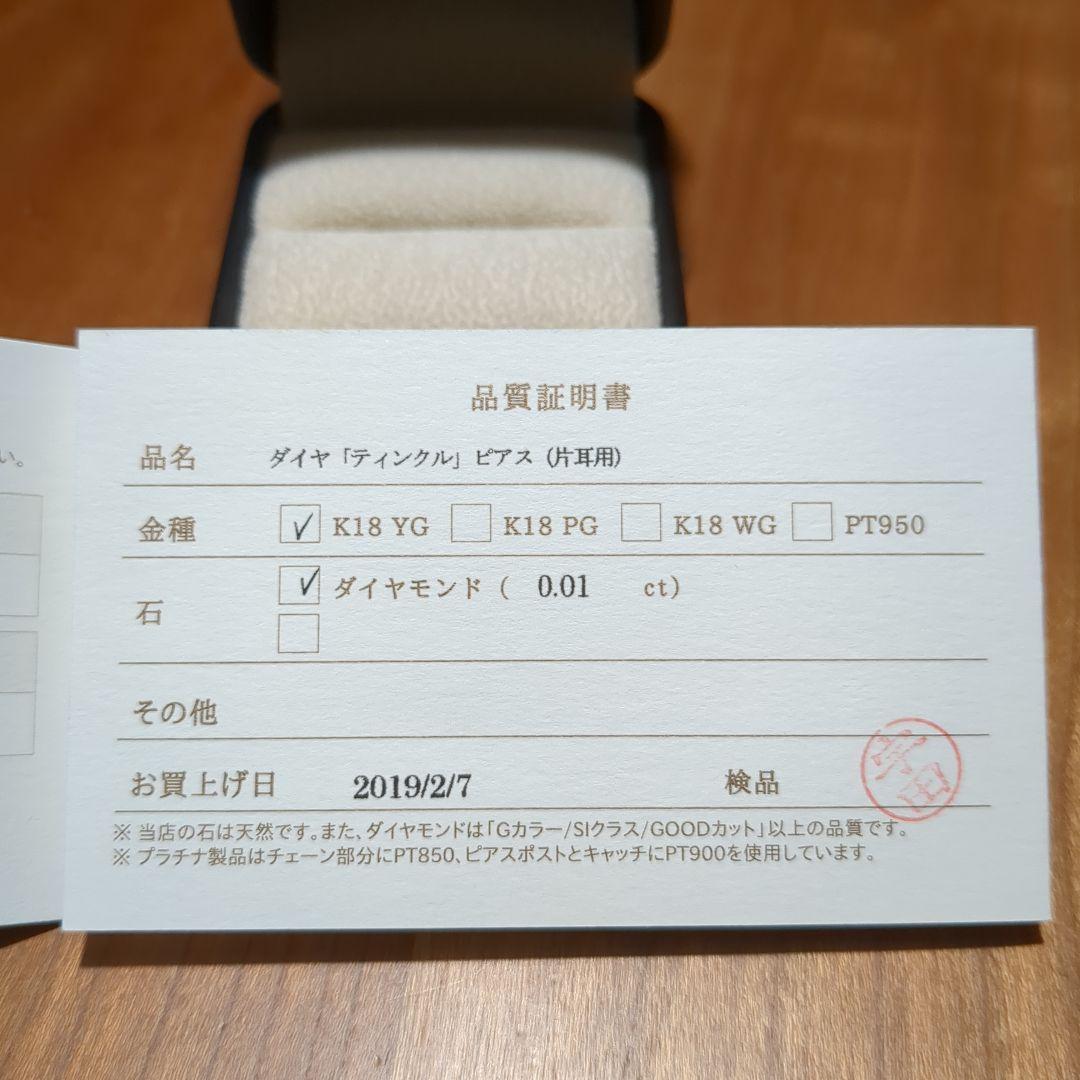 品質証明書
品名 ダイヤ「ティンクル」ピアス (片耳用)
金種 ✓ K18 YG □ K18 PG □ K18 WG □ PT950
石 ✓ ダイヤモンド ( 0.01 ct)
□
その他
お買上げ日 2019/2/7 検品 宇田
※ 当店の石は天然です。また、ダイヤモンドは「Gカラー/SIクラス/GOODカット」以上の品質です。
※ プラチナ製品はチェーン部分にPT850、ピアスポストとキャッチにPT900を使用しています。
い。